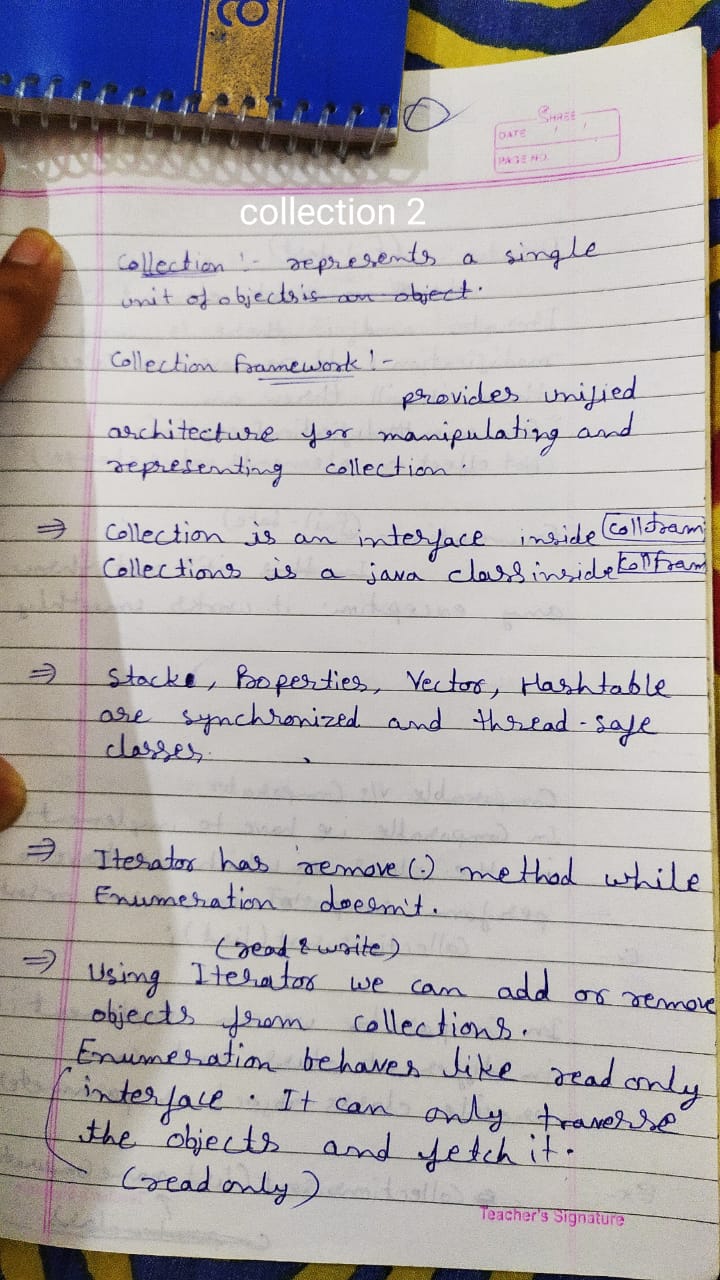 CO
SHREE
DATE
PAGE NO.
collection 2
Collection :- represents a single
unit of objects is an object.
Collection framework :-
provides unified
architecture for manipulating and
representing collection.
⇒ Collection is an interface inside Collfram
Collections is a java class inside Collfram
⇒ Stacke, Properties, Vector, Hashtable
are synchronized and thread-safe
classes.
⇒ Iterator has remove(.) method while
Enumeration doesn't.
(read & write)
⇒ Using Iterator we can add or remove
objects from collections.
Enumeration behaves like read only
interface. It can only traverse
the objects and fetch it.
(read only)
Teacher's Signature